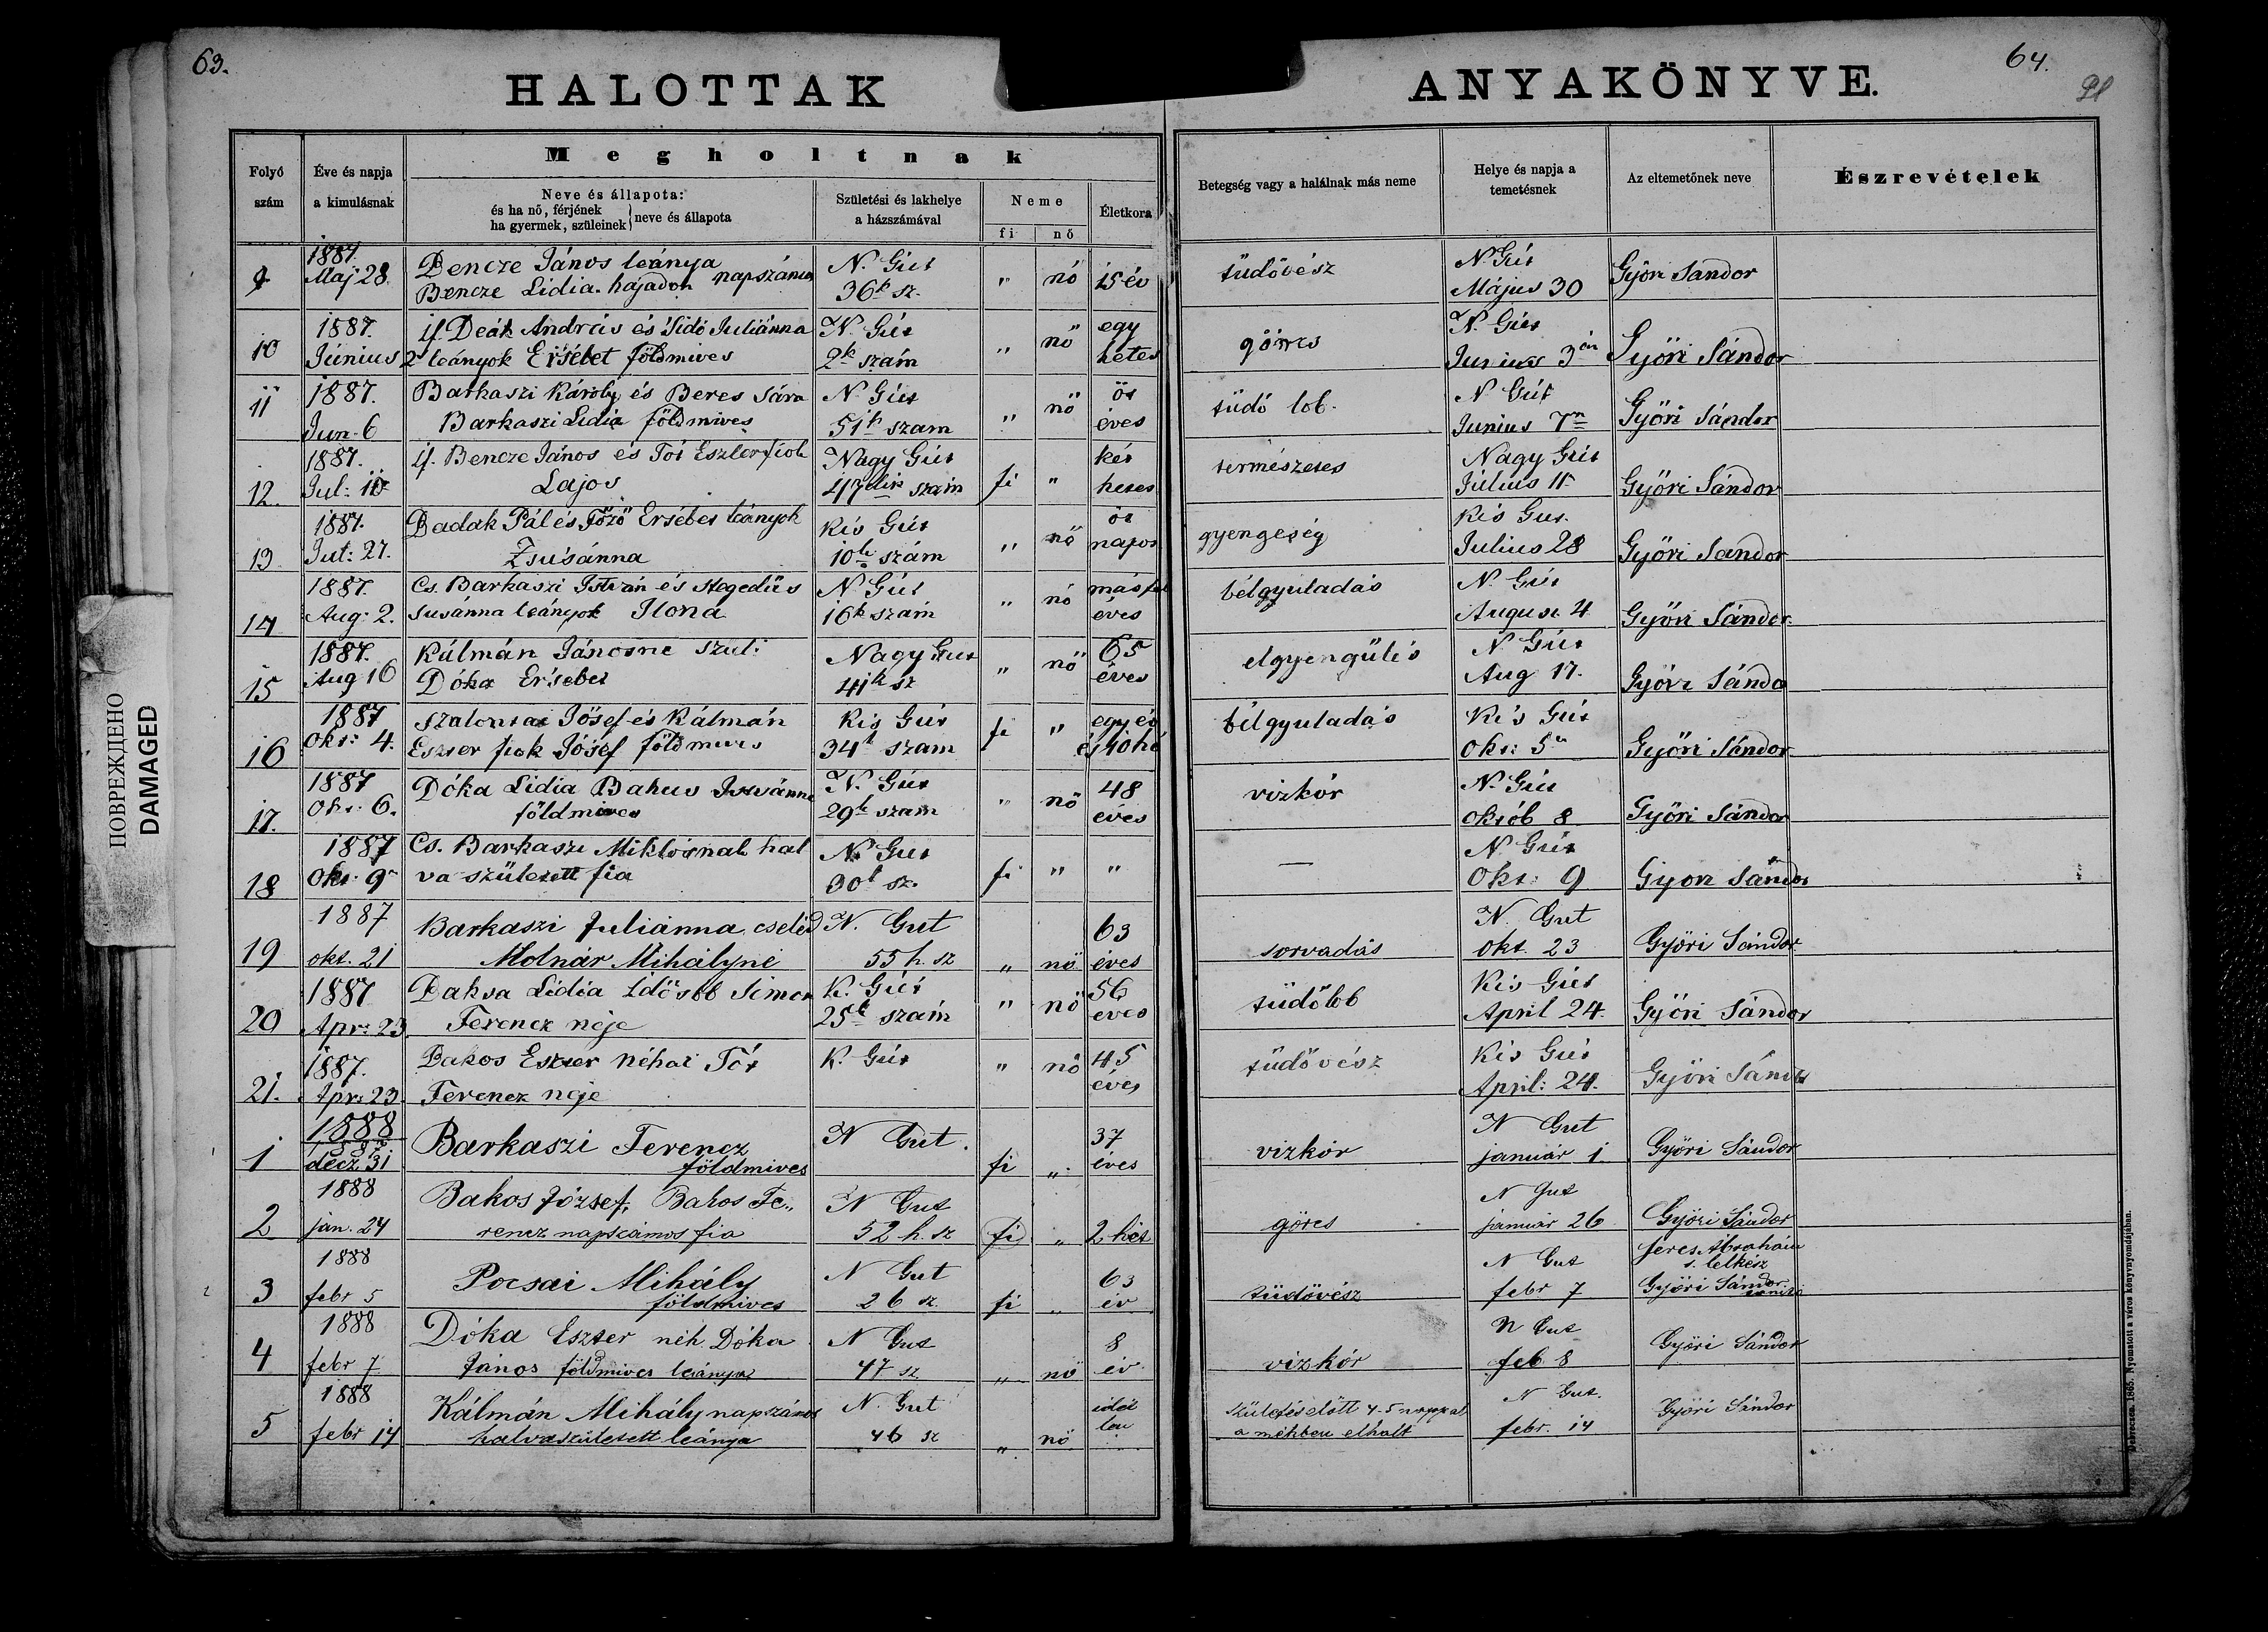 63.
64.
HALOTTAK
ANYAKÖNYVE.
ПОВРЕЖДЕНО
DAMAGED
Folyó szám
Éve és napja a kimulásnak
Megholtnak
Neve és állapota:
és ha nő, férjének
ha gyermek, szüleinek} neve és állapota
Születési és lakhelye a házszámával
Neme
fi nő
Életkora
Betegség vagy a halálnak más neme
Helye és napja a temetésnek
Az eltemetőnek neve
Észrevételek
9 1887. Maj 28 Bencze János leánya napszámos Bencze Lidia hajadon N. Gút 36k sz. " nő 15 év tüdővész N. Gút Május 30 Győri Sándor
10 1887. Június 2 if. Deák András és Sidó Juliánna leányok Ersébet földmives N. Gút 2k szám " nő egy hetes görcs N. Gút Junius 3án Győri Sándor
11 1887. Jun. 6 Barkaszi Károly és Beres Sára Barkaszi Lidia földmives N. Gút 51k szam " nő öt éves tüdő lob. N Gút Junius 7n Győri Sándor
12. 1887. Jul: 10 if. Bencze János és Tót Eszter fiok Lajos Nagy Gút 47dik szám fi " két hetes természetes Nagy Gút Július 11 Győri Sándor
13 1887. Jul: 27. Badak Pál és Tőző Ersébet leányok Zsuśánna Kis Gút 10k szám " nő öt napos gyengeség Kis Gut. Julius 28 Győri Sandor
14 1887. Aug: 2. Cs. Barkaszi István és Hegedűs Susánna leányok Ilona N. Gút 16k szám " nő másfél éves bélgyuladás N. Gút August 4 Győri Sándor.
15 1887. Aug 16 Kálmán Jánosne szul: Dóka Ersebet Nagy Gut 41k sz " nő 65 éves elgyengülés N. Gút Aug 17. Győri Sándor
16 1887 Okt: 4. Szalontai Jósef és Kálmán Eszter fiok Jósef földmives Kis Gút 34k szam fi " egy év és 10 hó bélgyuladás Kis Gút Okt: 5n Győri Sándor
17. 1887 Okt. 6. Dóka Lidia Bakus Istvánné földmives N. Gút 29k szam " nő 48 éves vizkór N. Gút Októb 8 Győri Sándor
18 1887 Okt: 9 Cs. Barkaszi Miklósnak hal va született fia N. Gut 30k sz. fi " " — N. Gút Okt: 9 Győri Sándor
19 1887 okt. 21 Barkaszi Juliánna cseléd Molnár Mihályné N. Gut 55 h. sz " nő 63 éves sorvadás N. Gut okt. 23 Győri Sándor
20 1887 Apr: 23 Daksa Lidia Idősbb Simon Ferencz neje K. Gút 25k szám " nő 56 éves tüdőlob Kis Gút April 24. Győri Sándor
21. 1887. Apr: 23 Bakos Eszter néhai Tót Ferencz neje K. Gút " nő 45 éves tüdővész Kis Gút April: 24. Győri Sándor
1 1888 1887 decz 31 Barkaszi Ferencz földmives N Gut. fi " 37 éves vizkór N Gut január 1. Győri Sándor
2 1888 jan. 24 Bakos József, Bakos Fe„ rencz napszámos fia N Gut 52 h. sz fi " 2 hét görcs N Gut január 26 Győri Sándor
3 1888 febr 5 Pocsai Mihály földmives N Gut 26 sz. fi " 63 év tüdővész N Gut febr 7 Ábrahám s. lelkész Győri Sándor tanitó
4 1888 febr 7 Dóka Eszter néh. Dóka János földmives leánya N Gut 47 sz " nő 8 év vizkór N Gut feb 8 Győri Sándor
5 1888 febr 14 Kálmán Mihály napszámos halvaszületett leánya N. Gut 46 sz " nő idét len születés előtt 4-5 nappal a méhben elhalt N Gut. febr. 14 Győri Sándor
Debreczen. 1865. Nyomatott a város könyvnyomdájában.